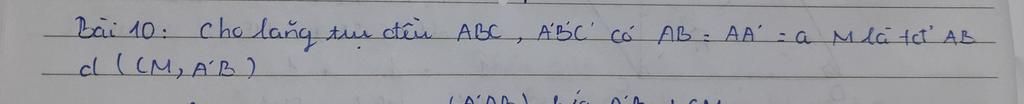 Bài 10: Cho lăng trụ đều ABC, A'B'C' có AB = AA' = a M là tđ AB
d (CM, A'B)